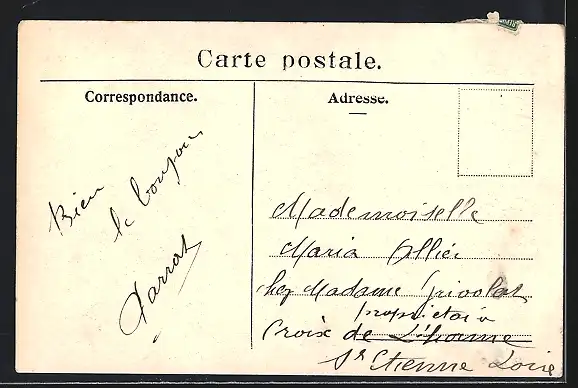 Carte postale.
Correspondance.
Adresse.
Bien
le bonjour
Mademoiselle
Maria Ollier
chez Madame
propriétair
Croix de L'homme
St Etienne Loire